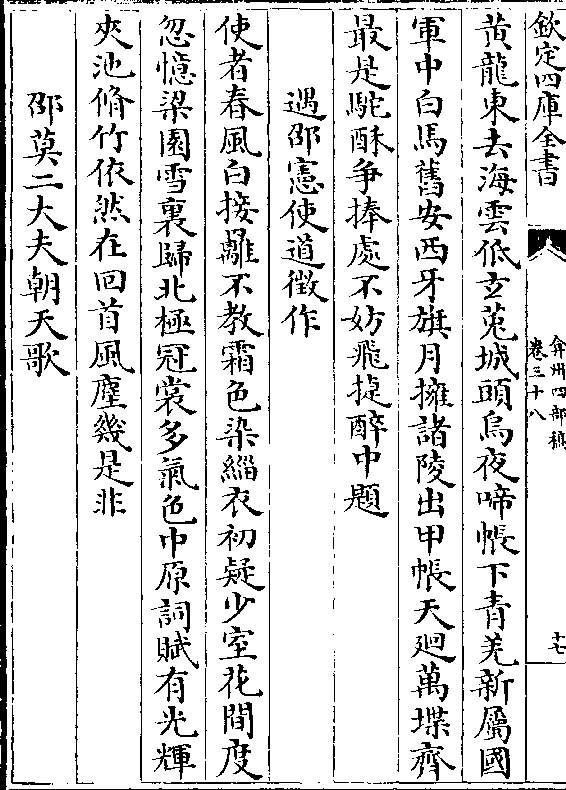 欽定四庫全書
弇州四部稿
卷三十八
十七
黃龍東去海雲低玄菟城頭烏夜啼帳下青羌新屬國
軍中白馬舊安西牙旗月擁諸陵出甲帳天廻萬堞齊
最是駝酥争捧處不妨飛捷醉中題
遇邵憲使道徵作
使者春風白接䍦不教霜色染緇衣初疑少室花間度
忽憶梁園雪裏歸北極冠裳多氣色中原詞賦有光輝
夾池脩竹依然在回首風塵幾是非
邵莫二大夫朝天歌